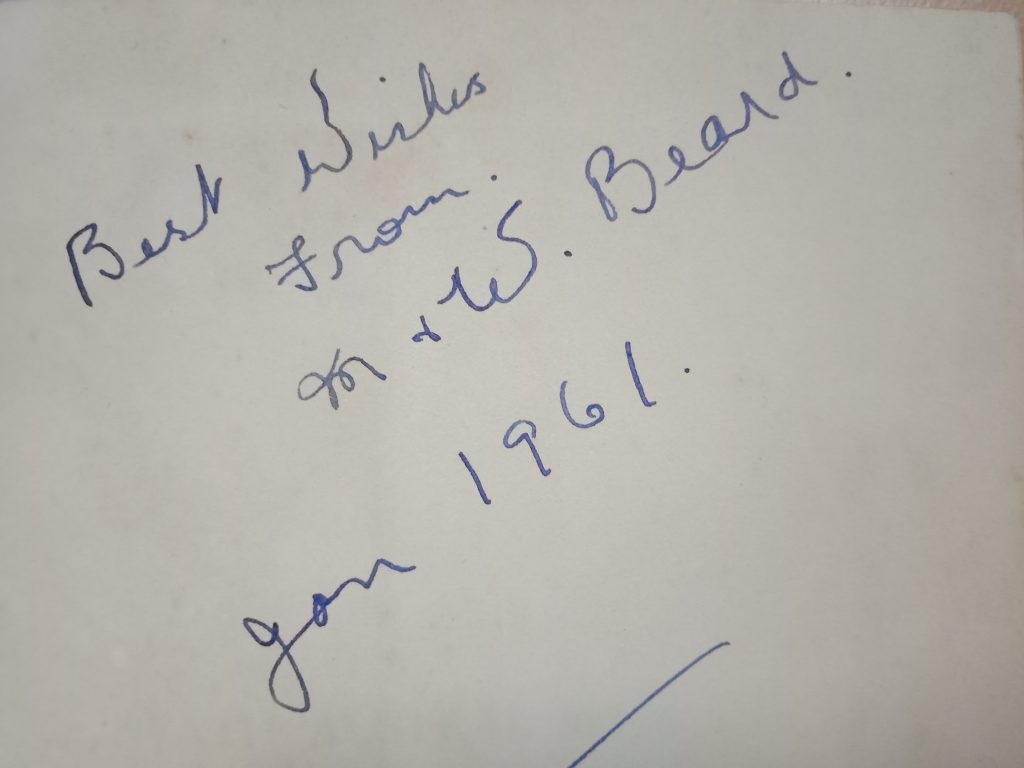 Best Wishes
From.
M & W. Beard.
Jan 1961.